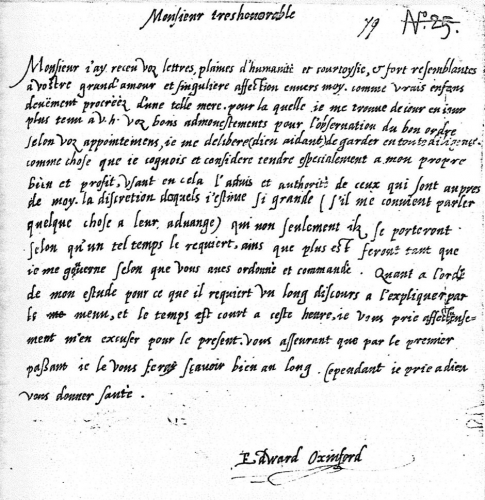 Monsieur treshonorable
79 No. 25.
Monsieur i'ay receu voz lettres, plaines d'humanité et courtoysie, & fort resemblantes
a vostre grand'amour et singuliere affection enuers moy. comme vrais enfans
deuëment procreez d'une telle mere. pour la quelle ie me treuue de iour en iour
plus tenu a v.h. voz bons admonestements pour l'obseruation du bon ordre
selon voz appointemens, ie me delibere (dieu aidant) de garder en toute diligence
comme chose que ie cognois et considere tendre especialement a mon propre
bien et profit, vsant en cela l'aduis et authorité de ceux qui sont aupres
de moy. la discretion desquels i'estime si grande (s'il me conuient parler
quelque chose a leur aduange) qui non seulement ilz se porteront
selon qu'un tel temps le requiert, ains que plus est feront tant que
ie me gouuerne selon que vous aues ordonné et commandé. Quant a l'ordre
de mon estude pour ce que il requiert vn long discours a l'expliquer par
le menu, et le temps est court a ceste heure, ie vous prie affectueuse-
ment m'en excuser pour le present. vous asseurant que par le premier
passant ie le vous feray sçauoir bien au long. Cependant ie prie a dieu
vous donner santé.
Edward Oxinford